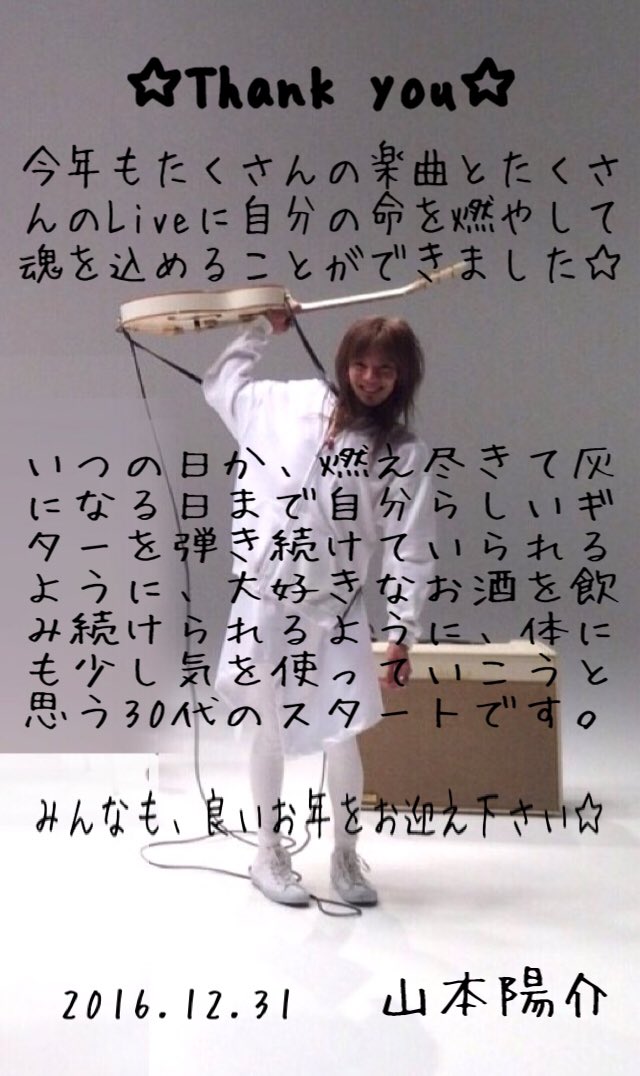 ☆Thank you☆
今年もたくさんの楽曲とたくさ
んのLiveに自分の命を燃やして
魂を込めることができました☆
いつの日か、燃え尽きて灰
になる日まで自分らしいギ
ターを弾き続けていられる
ように、大好きなお酒を飲
み続けられるように、体に
も少し気を使っていこうと
思う30代のスタートです。
みんなも、良いお年をお迎え下さい☆
2016.12.31 山本陽介